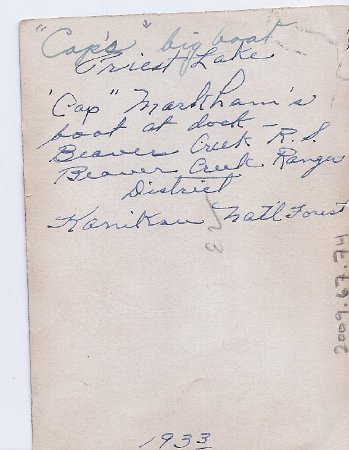 "Cap's" big boat
Priest Lake
'Cap" Markham's
boat at dock -
Beaver Creek R.S.
Beaver Creek Ranger
District
Kaniksu Nat'l Forest
1933
2009.67.74